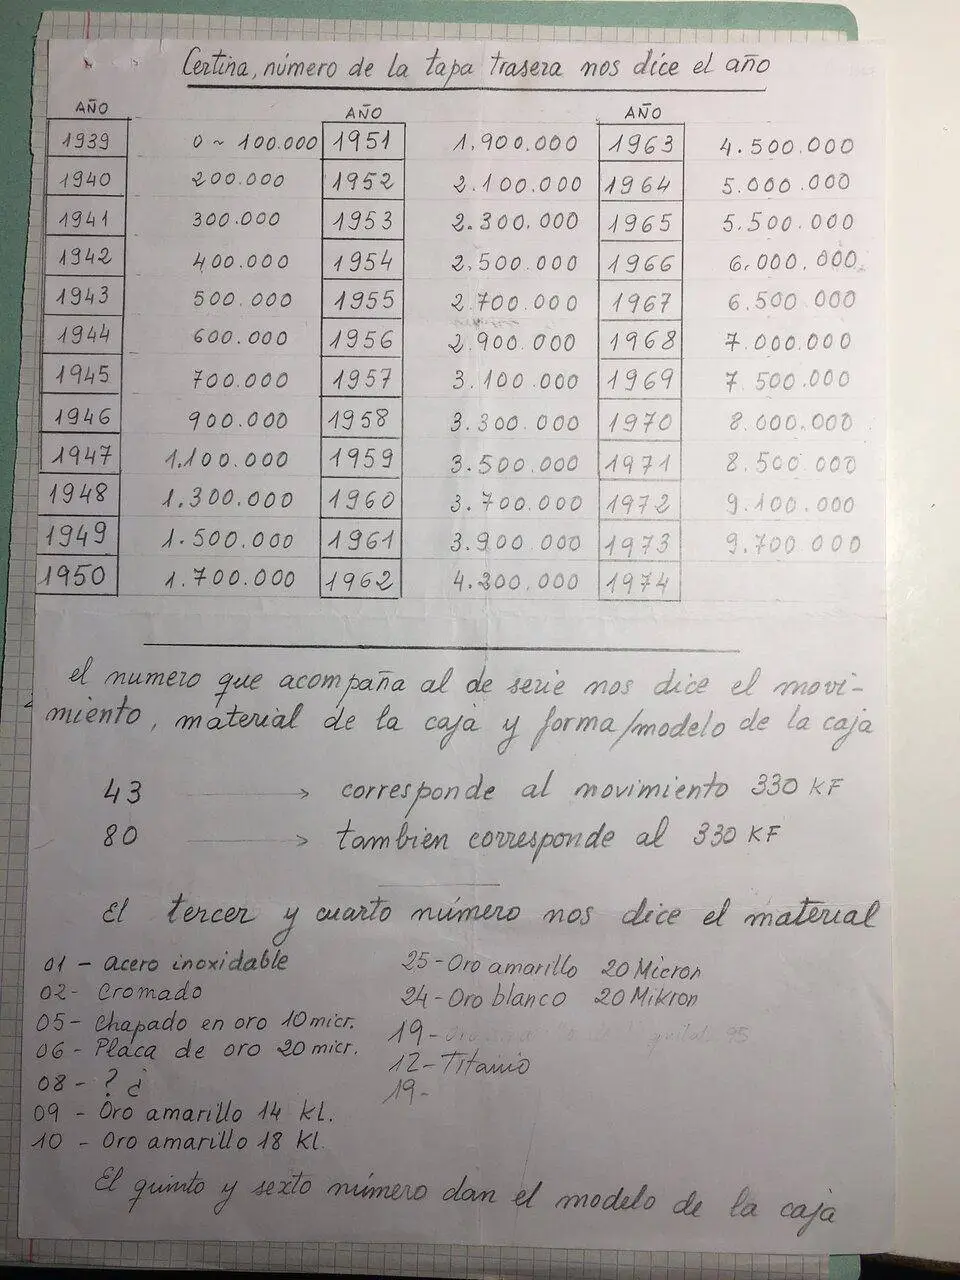 Certina, número de la tapa trasera nos dice el año
AÑO AÑO AÑO
1939 0 ~ 100.000 1951 1.900.000 1963 4.500.000
1940 200.000 1952 2.100.000 1964 5.000.000
1941 300.000 1953 2.300.000 1965 5.500.000
1942 400.000 1954 2,500.000 1966 6.000.000
1943 500.000 1955 2.700.000 1967 6.500 000
1944 600.000 1956 2.900.000 1968 7.000.000
1945 700.000 1957 3.100.000 1969 7.500.000
1946 900.000 1958 3.300.000 1970 8.000.000
1947 1.100.000 1959 3.500.000 1971 8.500.000
1948 1.300.000 1960 3.700.000 1972 9.100.000
1949 1.500.000 1961 3.900.000 1973 9.700 000
1950 1.700.000 1962 4.200.000 1974
el numero que acompaña al de serie nos dice el movi-
miento, material de la caja y forma/modelo de la caja
43 → corresponde al movimiento 330 KF
80 → tambien corresponde al 330 KF
El tercer y cuarto número nos dice el material
01 - acero inoxidable 25 - Oro amarillo 20 Micron
02 - Cromado 24 - Oro blanco 20 Mikron
05 - Chapado en oro 10 micr. 19 -
06 - Placa de oro 20 micr. 12 - Titanio
08 - ? ¿ 19 -
09 - Oro amarillo 14 kl.
10 - Oro amarillo 18 kl.
El quinto y sexto número dan el modelo de la caja